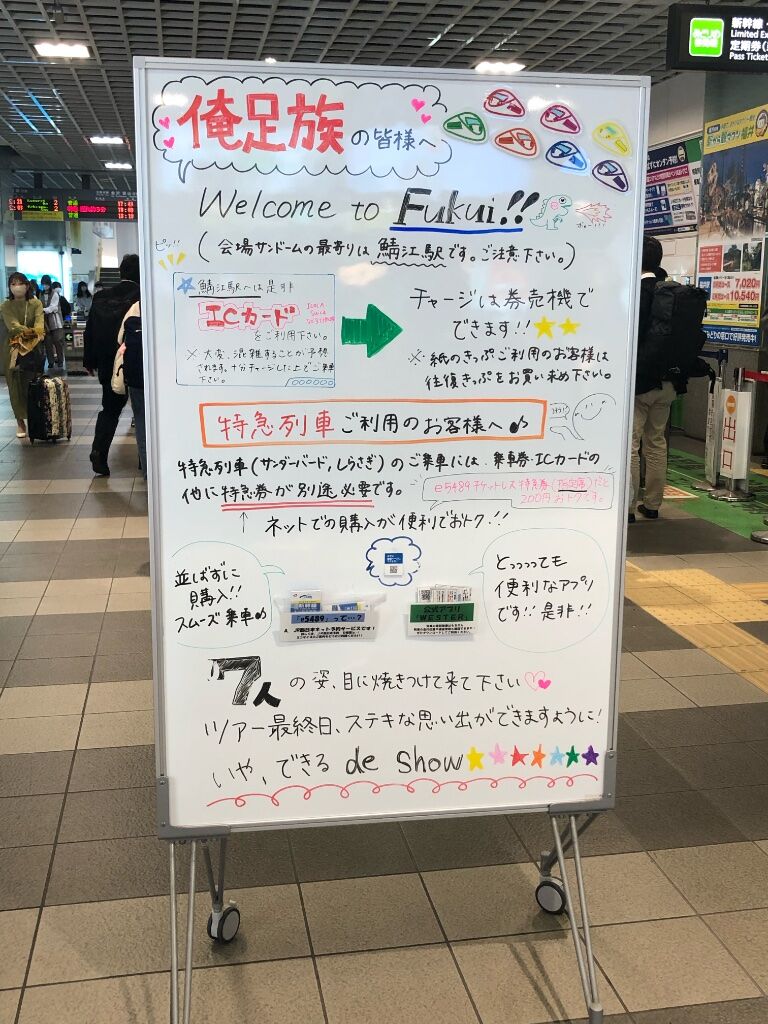 俺足族の皆様へ
Welcome to Fukui!!
(会場サンドームの最寄りは鯖江駅です。ご注意下さい。)
ピッ!!
鯖江駅へは是非
ICカード
をご利用下さい。
※大変、混雑することが予想
されます。十分チャージした上でご乗車
下さい。
チャージは券売機で
できます!!
※紙のきっぷご利用のお客様は
往復きっぷをお買い求め下さい。
特急列車ご利用のお客様へ♪
特急列車(サンダーバード,しらさぎ)のご乗車には、乗車券・ICカードの
他に特急券が別途必要です。
e5489チケットレス特急券(指定席)だと
200円おトクです。
↑ ネットでの購入が便利でおトク!!
並ばずに
購入!!
スムーズ乗車♪
「e5489」って…?
JR西日本ネット予約サービスです!
公式アプリ
「WESTER」
とっっっても
便利なアプリ
です!!是非!!
7人の姿、目に焼きつけて来て下さい
ツアー最終日、ステキな思い出ができますように!
いや、できる de show
新幹線
定期券
Pass Ticket
7,020円
10,540円
出口